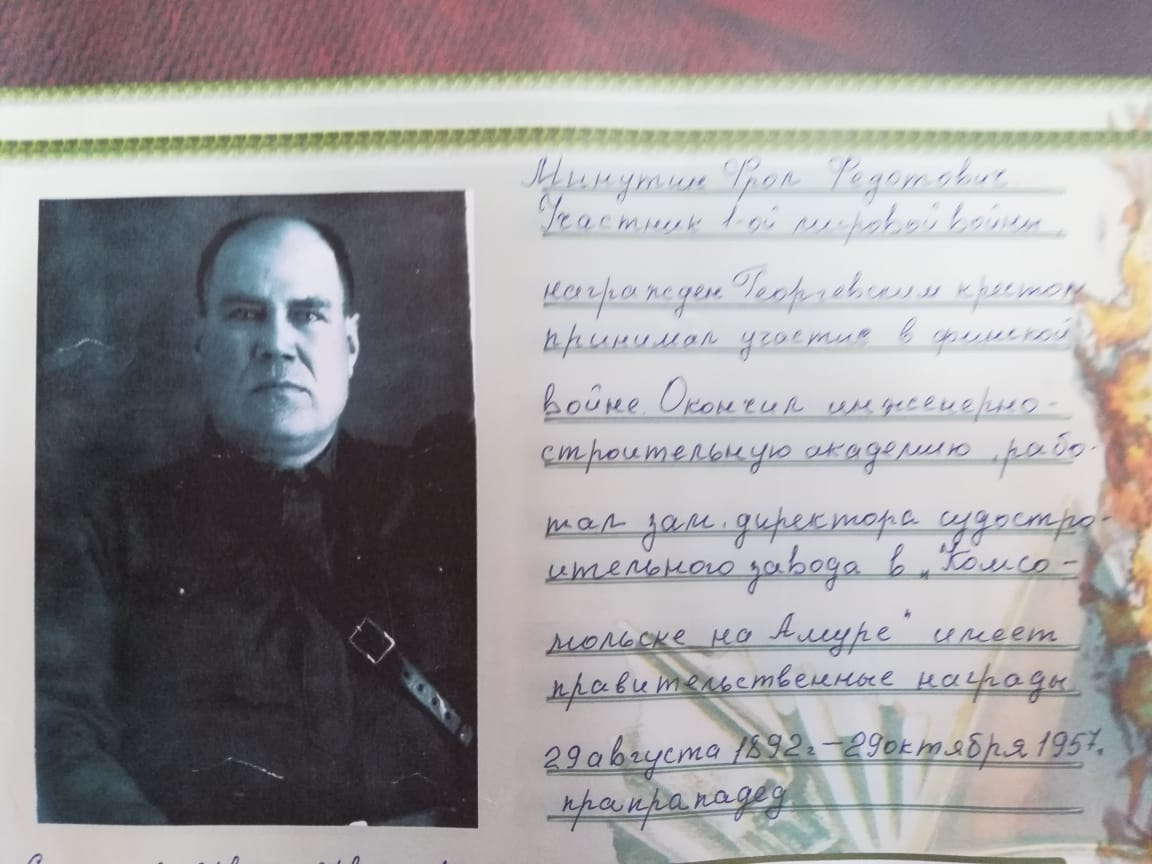 Минутин Фрол Федотович
Участник 1-ой мировой войны
награжден Георгевским крестом
принимал участие в финской
войне. Окончил инженерно-
строительную академию, рабо-
тал зам. директора судостро-
ительного завода в „Комсо-
мольске на Амуре" имеет
правительственные награды
29 августа 1892г.-29 октября 1957.
прапрападед